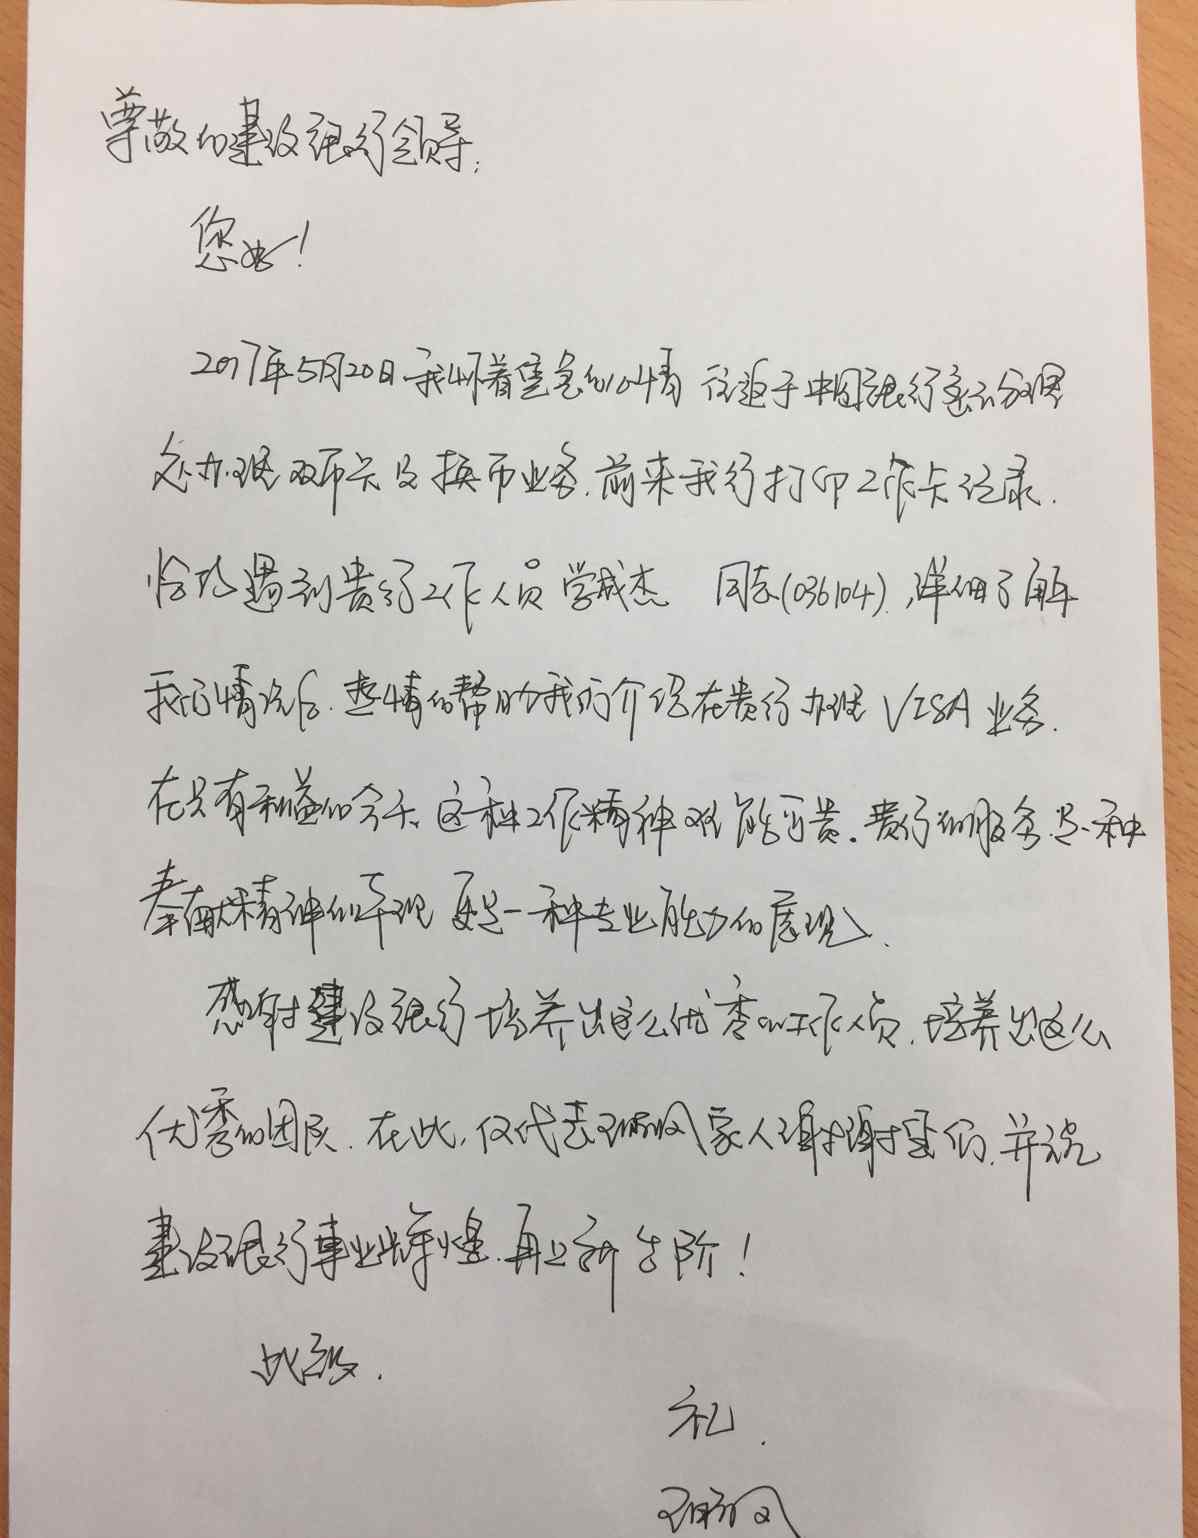 尊敬的建设银行领导:
您好!
2017年5月20日 我怀着焦急的心情 往返于中国银行 分理
处办理双币卡及换币业务.前来我行打印工作卡记录.
恰巧遇到贵行工作人员 学成杰 同志(036104),详细了解
我的情况后.热情的帮助我们介绍在贵行办理VISA业务.
在只有利益的今天,这种工作精神难能可贵.贵行的服务是一种
奉献精神的体现 更是一种专业能力的展现.
感谢建设银行培养出这么优秀的工作人员.培养出这么
优秀的团队.在此,仅代表 家人谢谢您们.并祝
建设银行事业辉煌.再上新台阶!
此致.
礼.